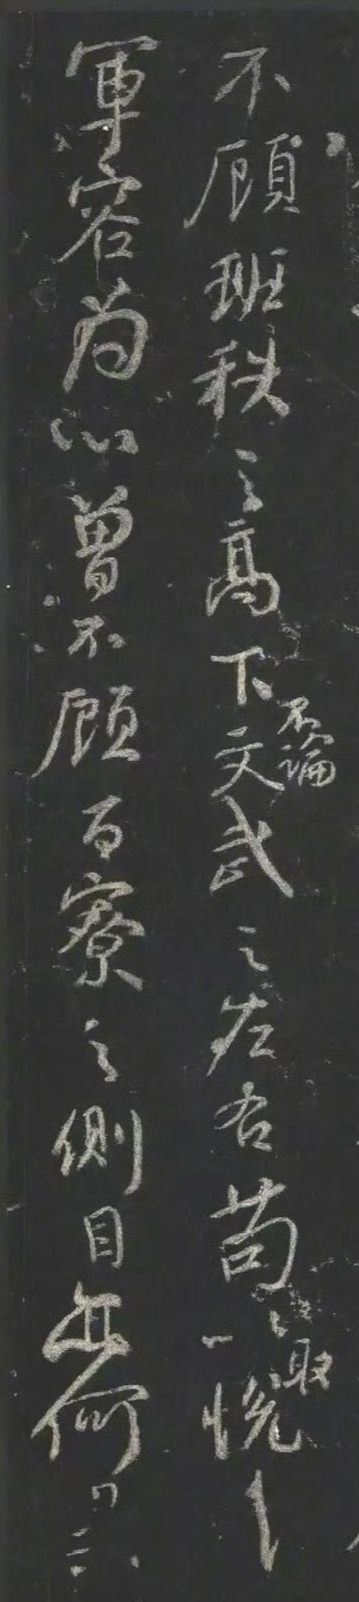 不顧班秩之高下不論文武之左右苟以取悅
軍容為心曾不顧百寮之側目亦何